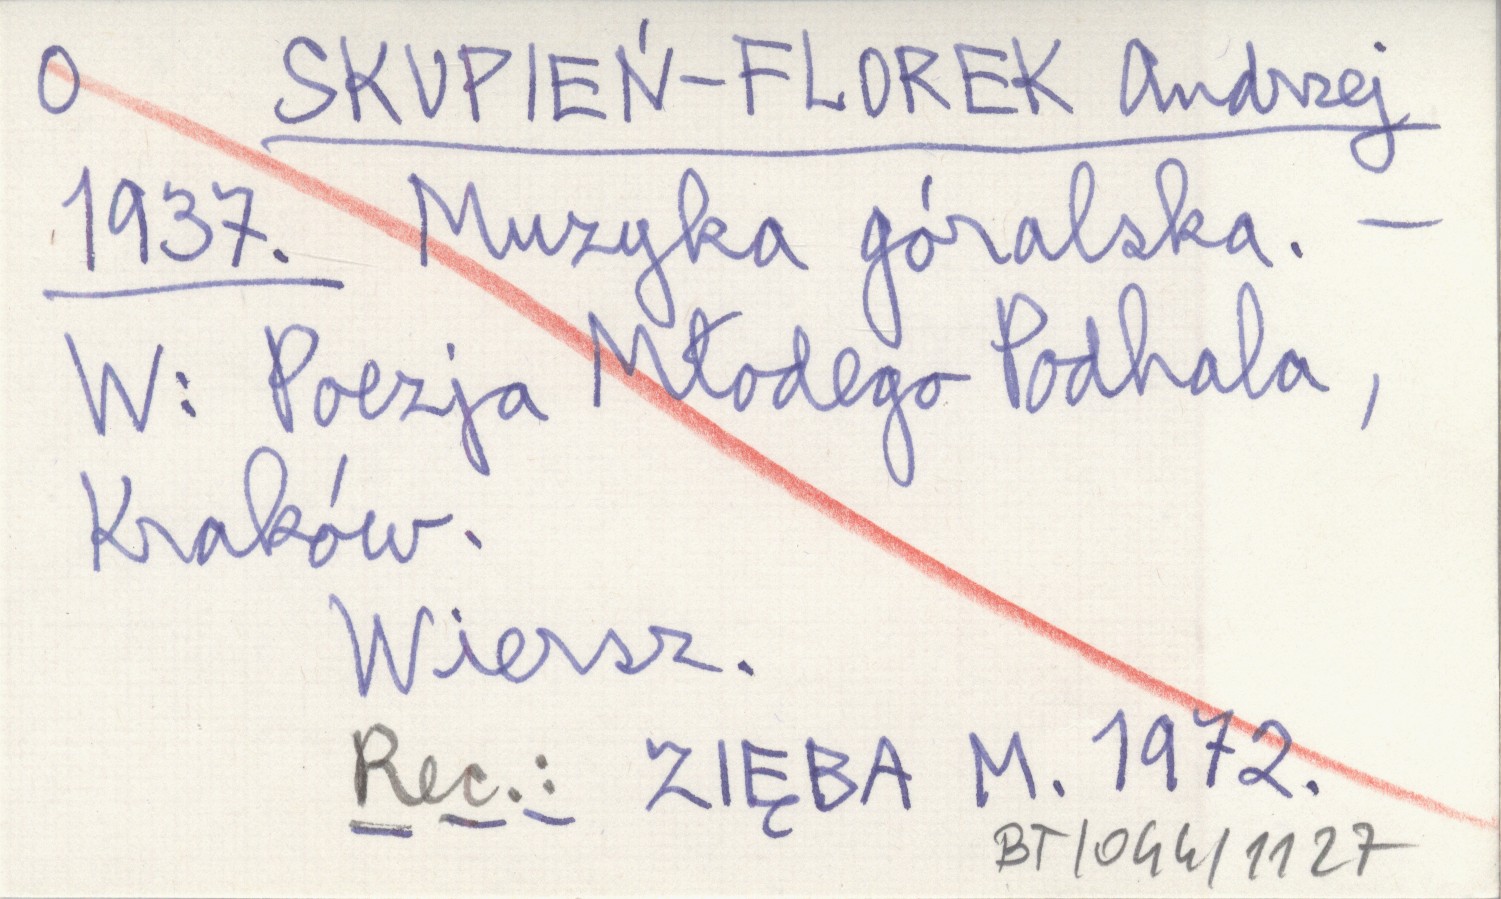 O SKUPIEŃ-FLOREK Andrzej
1937. Muzyka góralska. —
W: Poezja Młodego Podhala,
Kraków.
Wiersz.
Rec.: ZIĘBA M. 1972.
BT/044/1127